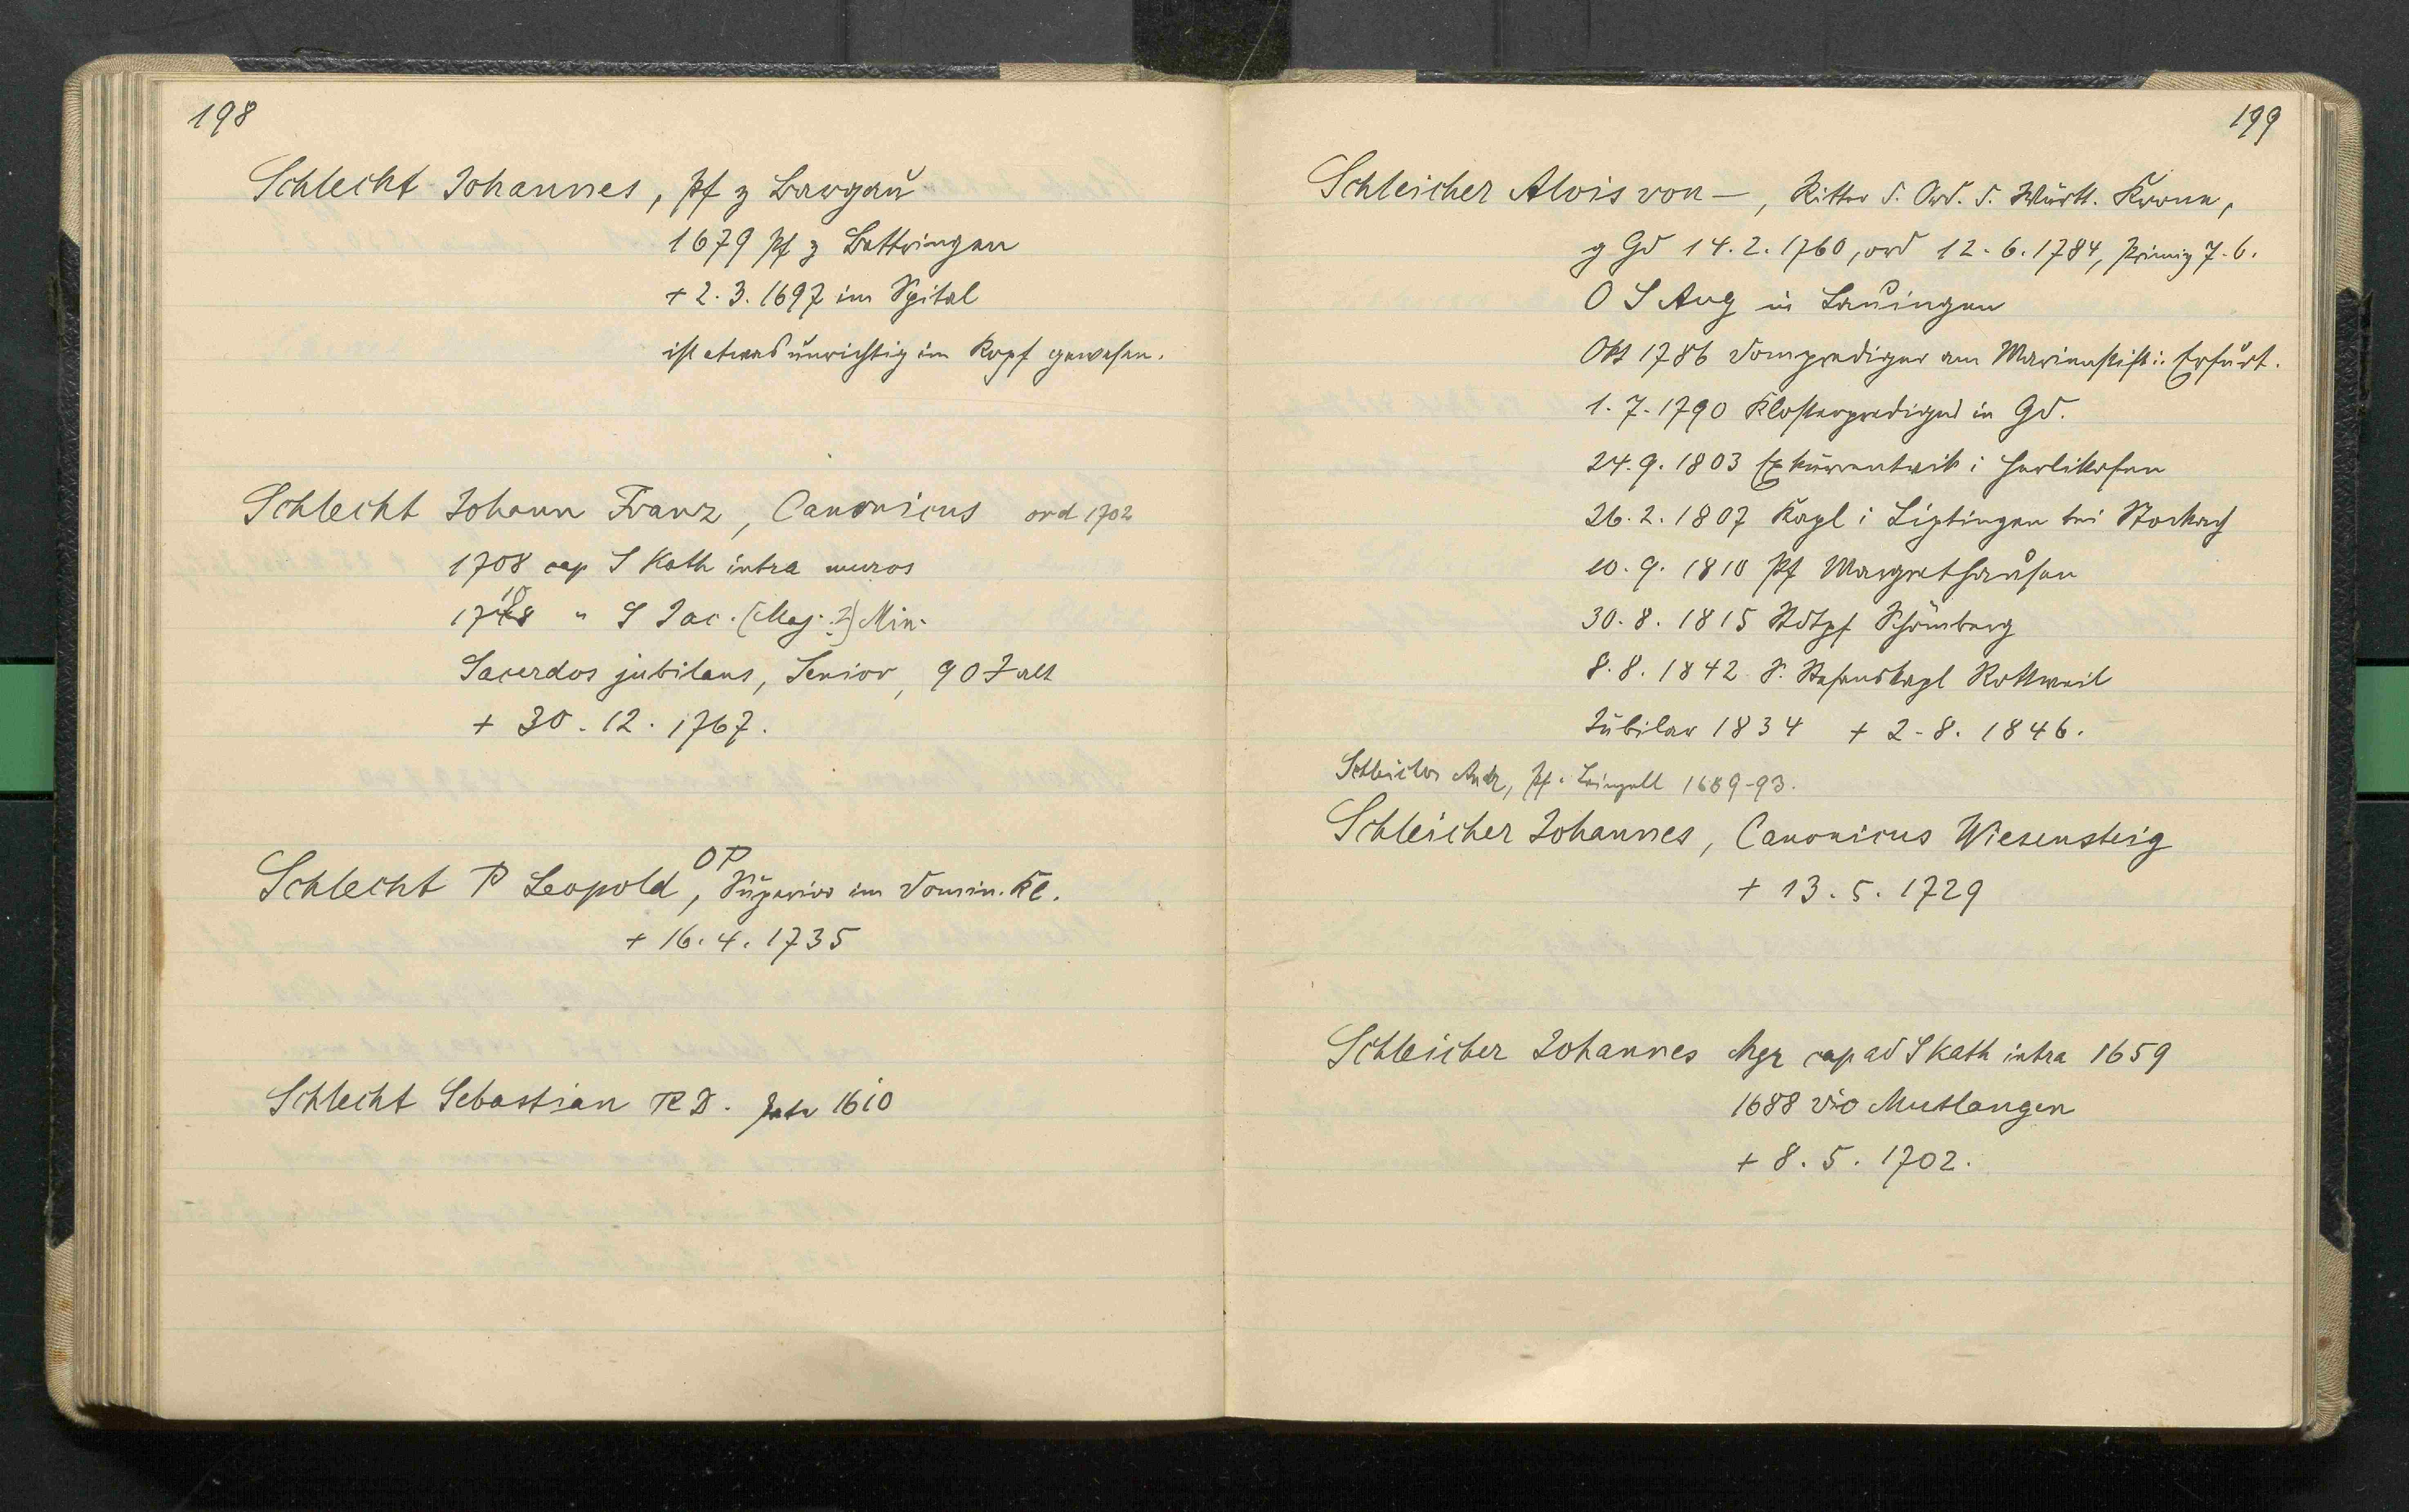 198
Schlecht Johannes, Pf z Bargau
1679 Pf z Bettringen
+ 2. 3. 1697 im Spital
ist etwas unrichtig im Kopf gewesen.
Schlecht Johann Franz, Canonicus ord 1702
1708 cap S Kath intra muros
1718 " S Jac. (Maj. ?) Min.
Sacerdos jubilans, Senior, 90 J alt
+ 30. 12. 1767.
Schlecht P Leopold OP, Superior im Domin. Kl.
+ 16. 4. 1735
Schlecht Sebastian RD. 1610
199
Schleicher Alois von —, Ritter d. Ord. d. Württ. Krone,
g Gd 14. 2. 1760, ord 12. 6. 1784, Primiz 7. 6.
O S Aug in Lauingen
Okt 1786 Domprediger am Marienstift i. Erfurt.
1. 7. 1790 Klosterprediger in Gd.
24. 9. 1803 Exkurrentvik i Herlikofen
26. 2. 1807 Kapl i Liptingen bei Stockach
10. 9. 1810 Pf Margrethausen
30. 8. 1815 Stdtpf Schömberg
8. 8. 1842 Kapl Rottweil
Jubilar 1834 + 2. 8. 1846.
Schleicher Andr, Pf. 1689-93.
Schleicher Johannes, Canonicus Wiesensteig
+ 13. 5. 1729
Schleicher Johannes Mgr cap ad S Kath intra 1659
1688 vic Mutlangen
+ 8. 5. 1702.